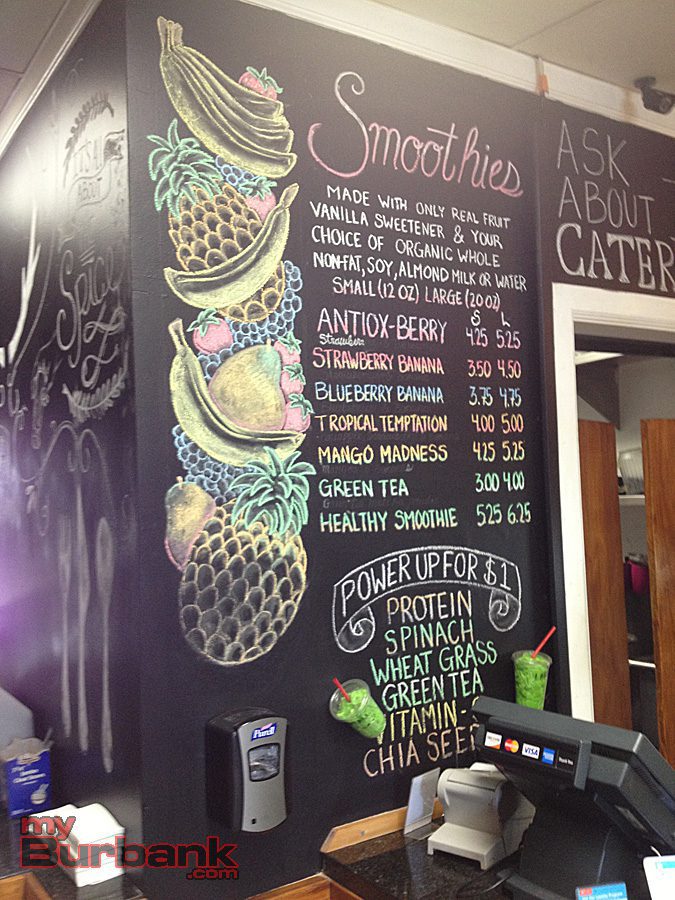 Smoothies
MADE WITH ONLY REAL FRUIT
VANILLA SWEETENER & YOUR
CHOICE OF ORGANIC WHOLE
NON-FAT, SOY, ALMOND MILK OR WATER
SMALL (12 OZ) LARGE (20 OZ)
S L
ANTIOX-BERRY 4.25 5.25
STRAWBERRY BANANA 3.50 4.50
BLUEBERRY BANANA 3.75 4.75
TROPICAL TEMPTATION 4.00 5.00
MANGO MADNESS 4.25 5.25
GREEN TEA 3.00 4.00
HEALTHY SMOOTHIE 5.25 6.25
POWER UP FOR $1
PROTEIN
SPINACH
WHEAT GRASS
GREEN TEA
VITAMIN-
CHIA SEE
ASK
ABOUT
CATER
IT'S ALL
ABOUT
THE
Spice
Purell
MasterCard VISA
my
Burbank
.com